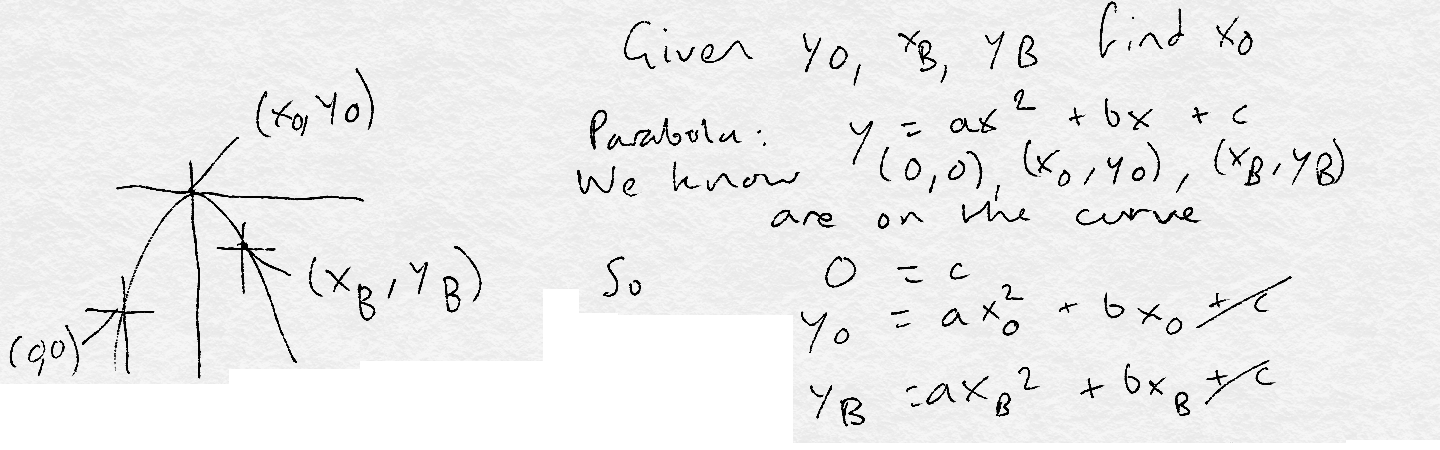 (x₀, y₀)
(x_B, y_B)
(0,0)
Given y₀, x_B, y_B find x₀
Parabola: y = ax² + bx + c
We know (0,0), (x₀, y₀), (x_B, y_B)
are on the curve
So 0 = c
y₀ = ax₀² + bx₀ + c
y_B = ax_B² + bx_B + c